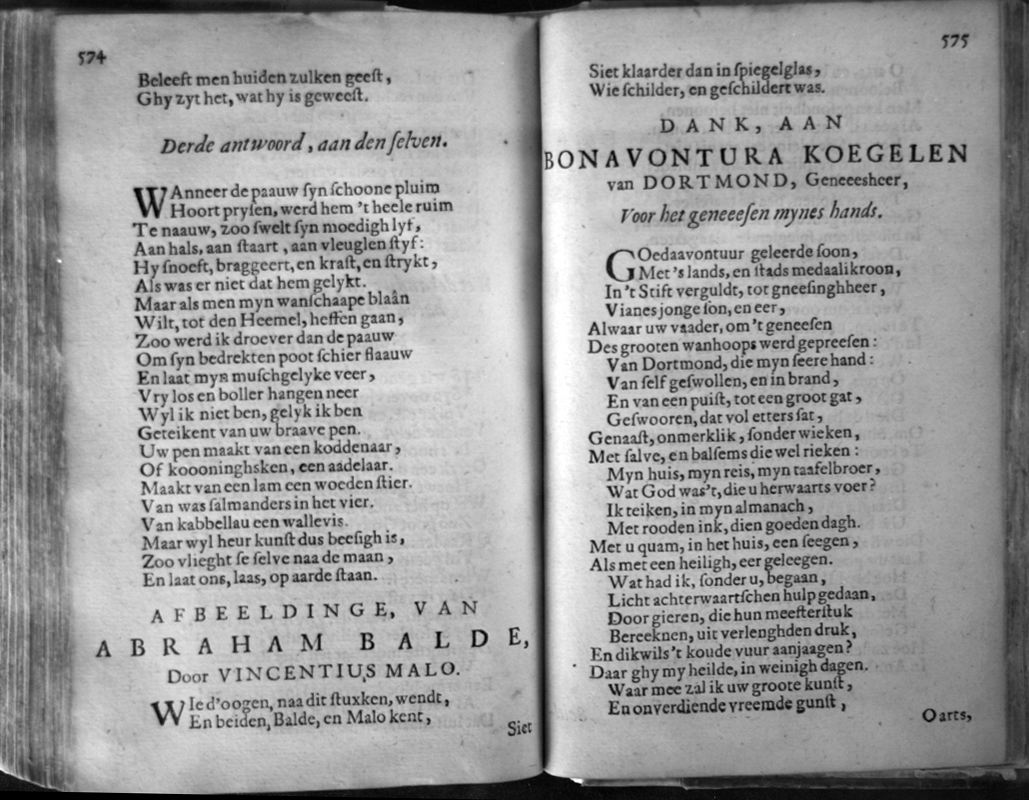 574
Beleeſt men huiden zulken geeſt,
Ghy zyt het, wat hy is geweeſt.
Derde antwoord, aan den ſelven.
WAnneer de paauw ſyn ſchoone pluim
Hoort pryſen, werd hem 't heele ruim
Te naauw, zoo ſwelt ſyn moedigh lyf,
Aan hals, aan ſtaart, aan vleuglen ſtyf:
Hy ſnoeft, braggeert, en kraſt, en ſtrykt,
Als was er niet dat hem gelykt.
Maar als men myn wanſchaape blaân
Wilt, tot den Heemel, heffen gaan,
Zoo werd ik droever dan de paauw
Om ſyn bedrekten poot ſchier flaauw
En laat myn muſchgelyke veer,
Vry los en boller hangen neer
Wyl ik niet ben, gelyk ik ben
Geteikent van uw braave pen.
Uw pen maakt van een koddenaar,
Of koooninghsken, een aadelaar.
Maakt van een lam een woeden ſtier.
Van was ſalmanders in het vier.
Van kabbellau een wallevis.
Maar wyl heur kunſt dus beeſigh is,
Zoo vlieght ſe ſelve naa de maan,
En laat ons, laas, op aarde ſtaan.
AFBEELDINGE, VAN
ABRAHAM BALDE,
Door VINCENTIUS MALO.
WIe d'oogen, naa dit ſtuxken, wendt,
En beiden, Balde, en Malo kent,
Siet
575
Siet klaarder dan in ſpiegelglas,
Wie ſchilder, en geſchildert was.
DANK, AAN
BONAVONTURA KOEGELEN
van DORTMOND, Geneeesheer,
Voor het geneeeſen mynes hands.
GOedaavontuur geleerde ſoon,
Met 's lands, en ſtads medaalikroon,
In 't Stift verguldt, tot gneeſinghheer,
Vianes jonge ſon, en eer,
Alwaar uw vaader, om 't geneeſen
Des grooten wanhoops werd gepreeſen:
Van Dortmond, die myn ſeere hand:
Van ſelf geſwollen, en in brand,
En van een puiſt, tot een groot gat,
Geſwooren, dat vol etters ſat,
Genaaſt, onmerklik, ſonder wieken,
Met ſalve, en balſems die wel rieken:
Myn huis, myn reis, myn taafelbroer,
Wat God was't, die u herwaarts voer?
Ik teiken, in myn almanach,
Met rooden ink, dien goeden dagh.
Met u quam, in het huis, een ſeegen,
Als met een heiligh, eer geleegen.
Wat had ik, ſonder u, begaan,
Licht achterwaartſchen hulp gedaan,
Door gieren, die hun meeſterſtuk
Bereeknen, uit verlenghden druk,
En dikwils 't koude vuur aanjaagen?
Daar ghy my heilde, in weinigh dagen.
Waar mee zal ik uw groote kunſt,
En onverdiende vreemde gunſt,
Oarts,